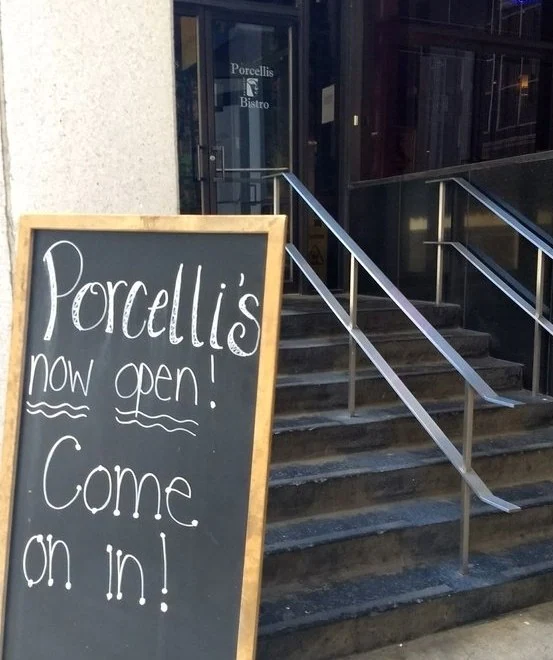 Porcellis
Bistro
Porcelli's
now open!
Come
on in!